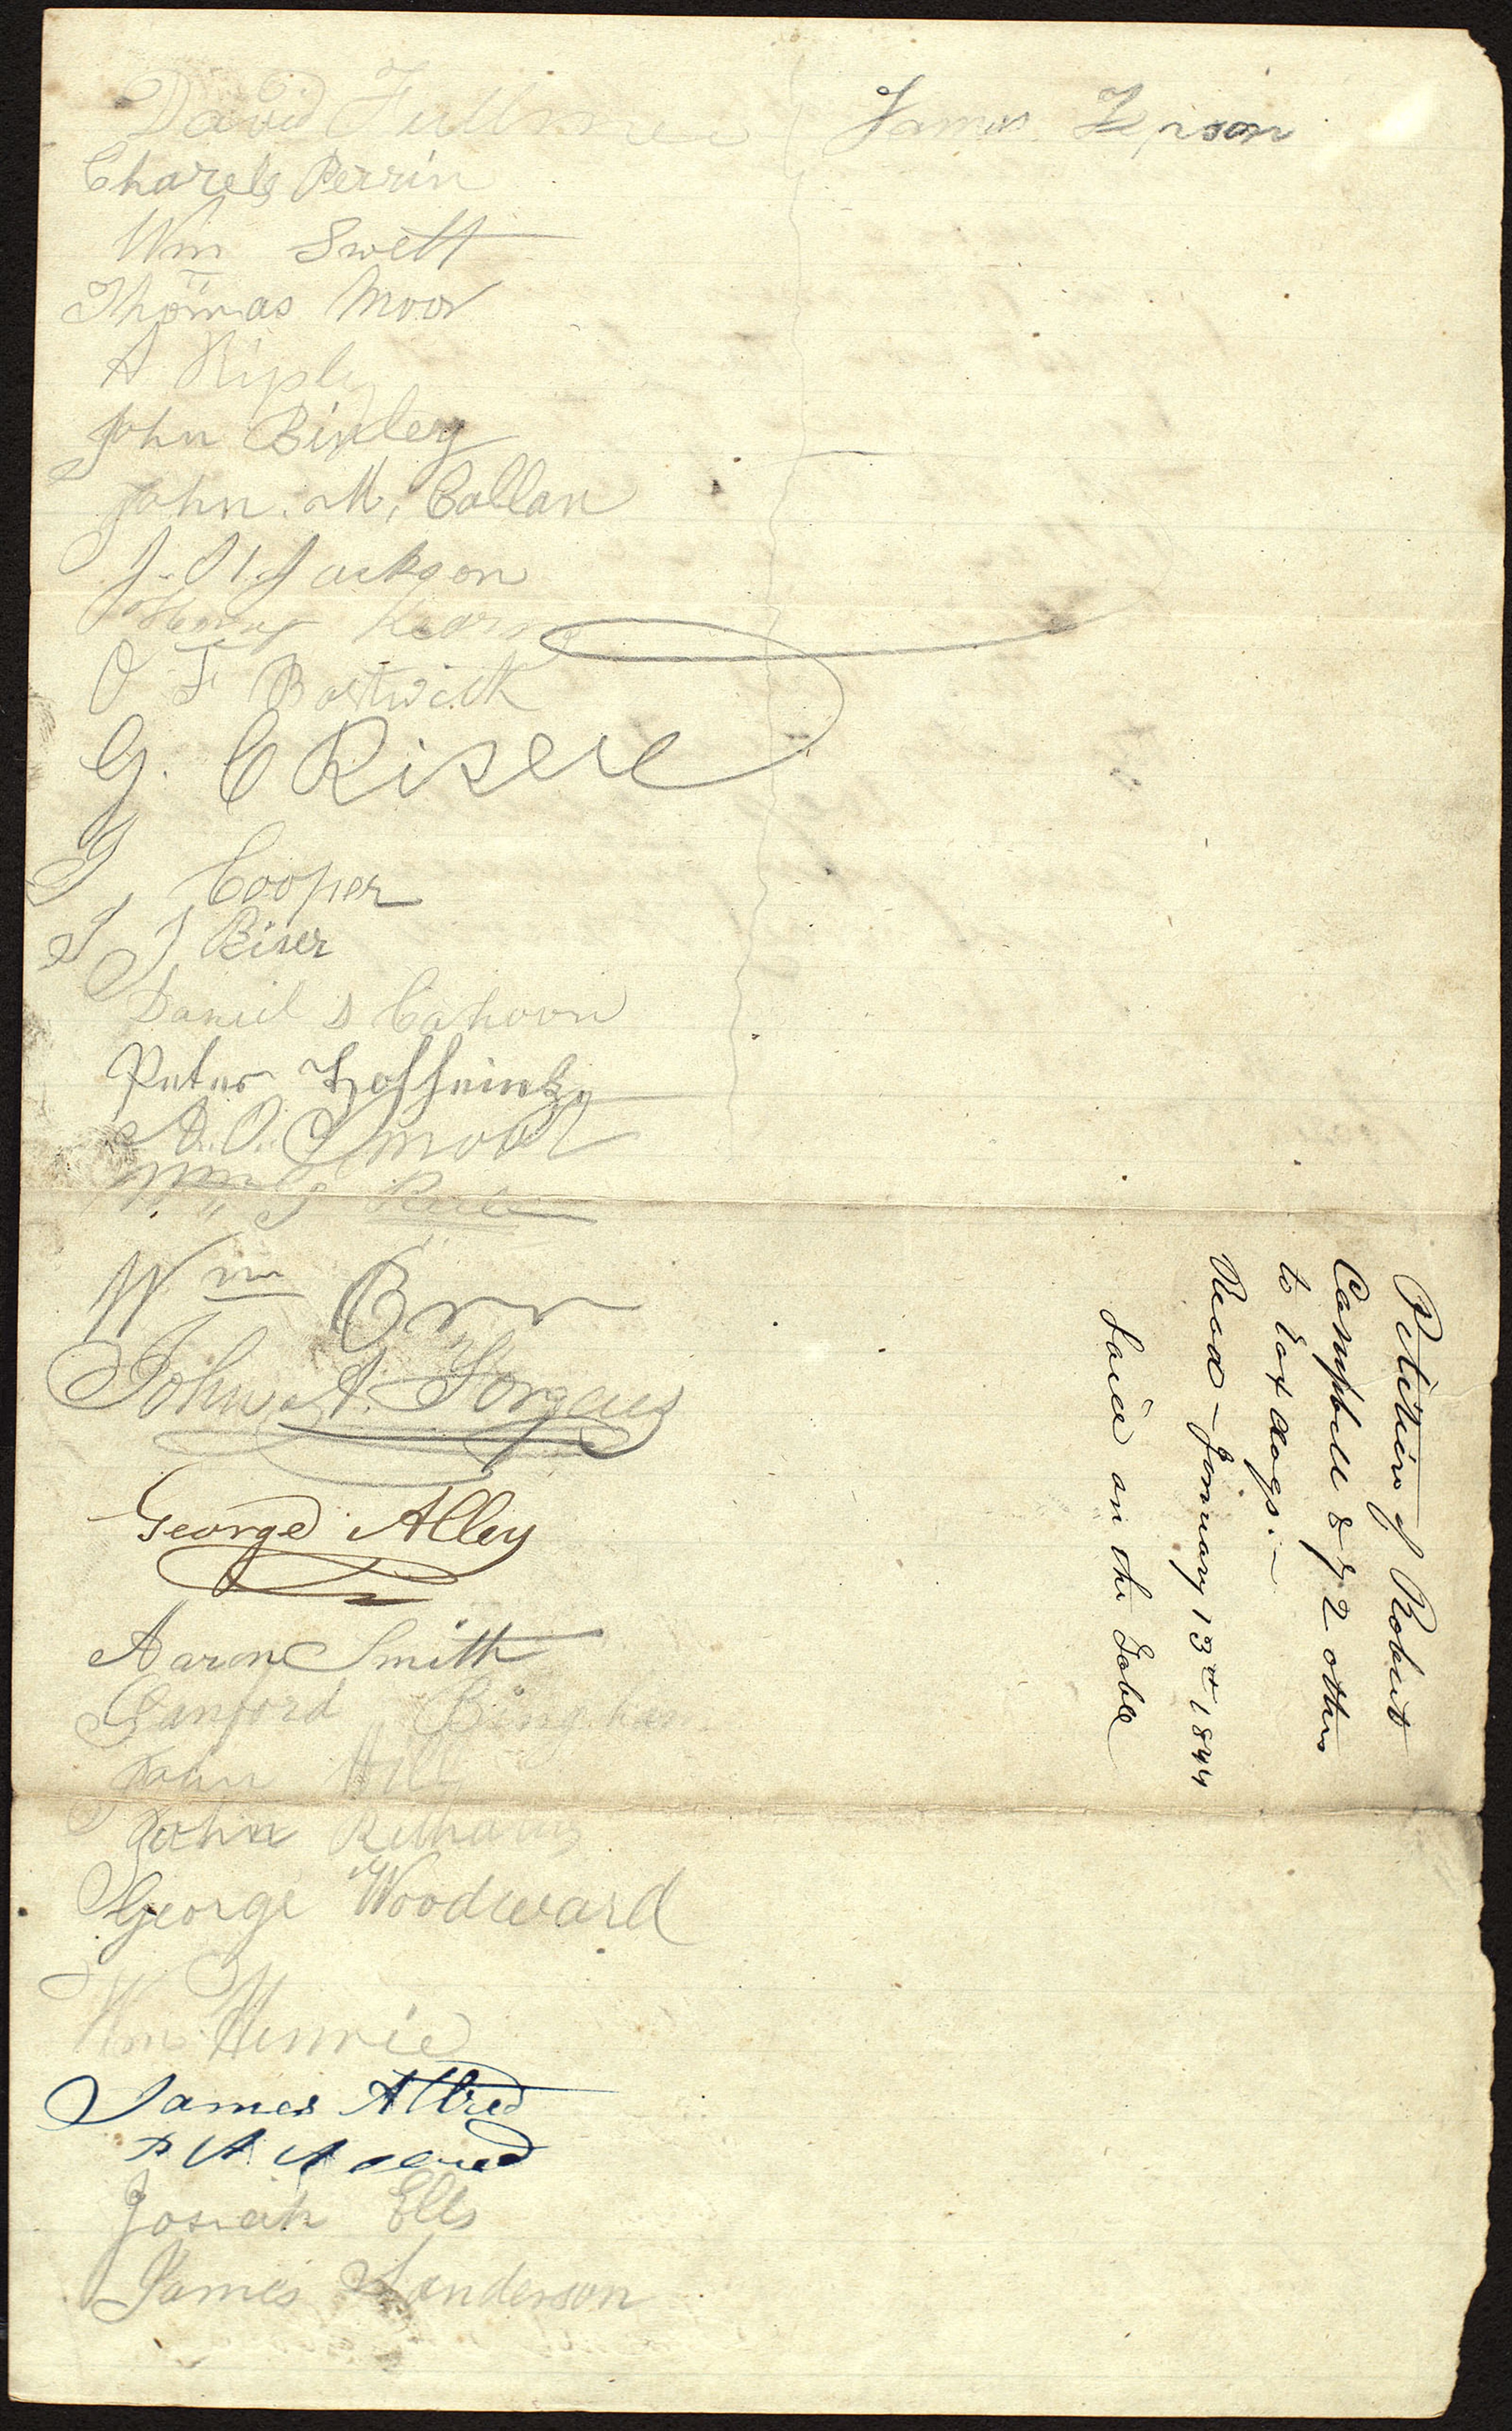 David Fullmer
Charels Perrin
Wm Swett
Thomas Moor
A Riply
John Bixley
John. M, Callan
J. H Jackson
Henry Kearns
O F Bostwick
G. C Riser
J, Cooper
J J Riser
Daniel D Cahoon
Peter
A. O. Smoot
Wm
Wm Orr
John A. Forgeus
George Alley
Aaron Smith
Sanford Bingham
John Hill
John Richards
George Woodward
Wm Henrie
James Allred
Josiah Ells
James Sanderson
James
Petition of Robert
Campbell & 72 others
to tax dogs.—
Read — January 13th 1844
Laid on the Table